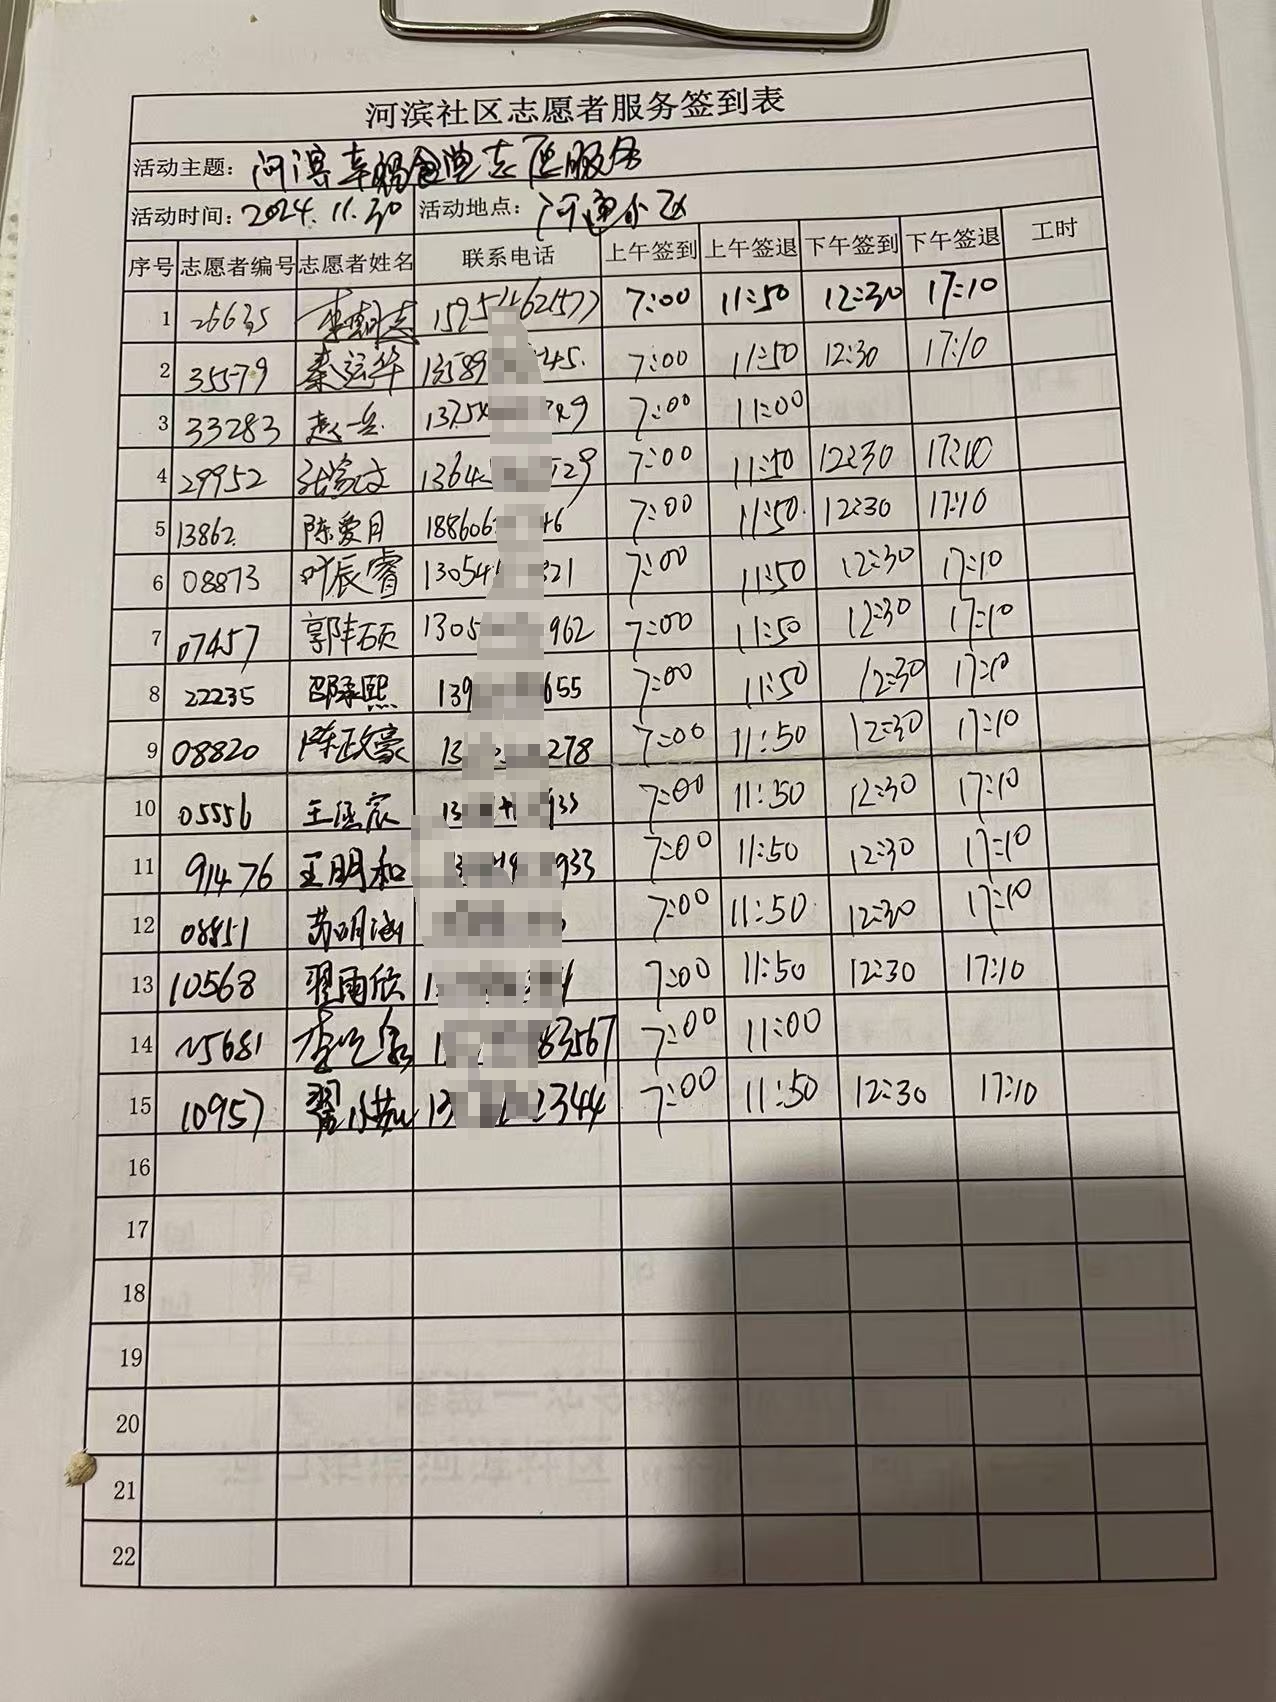 河滨社区志愿者服务签到表
活动主题：河滨幸福食堂志愿服务
活动时间：2024.11.30 活动地点：河通小区
序号 志愿者编号 志愿者姓名 联系电话 上午签到 上午签退 下午签到 下午签退 工时
1 26635 7:00 11:50 12:30 17:10
2 35579 秦运华 13589 45. 7:00 11:50 12:30 17:10
3 33283 赵一 7:00 11:00
4 29952 张富文 1364 529 7:00 11:50 12:30 17:10
5 13862 陈爱月 18860 46 7:00 11:50 12:30 17:10
6 08873 叶辰睿 1305 821 7:00 11:50 12:30 17:10
7 07457 郭丰硕 1305 962 7:00 11:50 12:30 17:10
8 22235 邵承熙 139 655 7:00 11:50 12:30 17:10
9 08820 陈政豪 13 278 7:00 11:50 12:30 17:10
10 05556 王 13 933 7:00 11:50 12:30 17:10
11 91476 王明和 933 7:00 11:50 12:30 17:10
12 苏明涵 7:00 11:50 12:30 17:10
13 10568 翟雨欣 1 7:00 11:50 12:30 17:10
14 25681 李 1 83567 7:00 11:00
15 10957 翟 13 2344 7:00 11:50 12:30 17:10
16
17
18
19
20
21
22